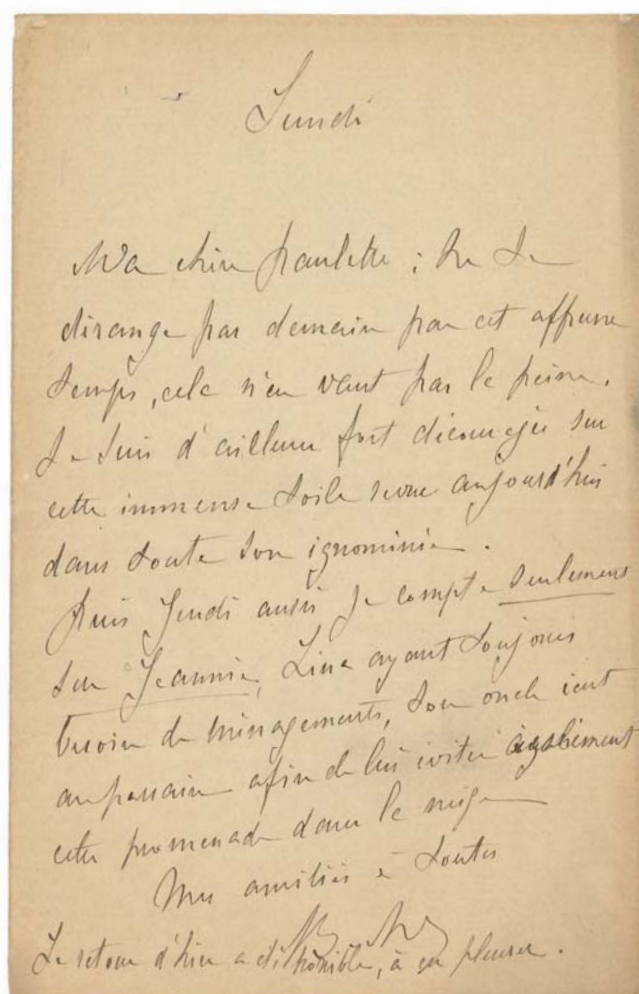 Lundi
Ma chère Paulette ; ne te
dérange pas demain par cet affreux
temps, cela n'en vaut pas la peine.
Je suis d'ailleurs fort découragée sur
cette immense toile revue aujourd'hui
dans toute son ignominie.
Puis Jeudi aussi je compte seulement
sur Jeannie, Line ayant toujours
besoin de ménagements, son oncle
afin de lui éviter également
cette promenade dans la neige
Mes amitiés à toutes
Le retour d'hier a été horrible, à en pleurer.